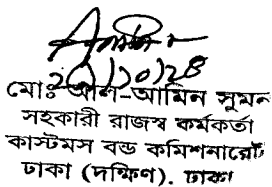 ২০/১০/২৪
মোঃ আল-আমিন সুমন
সহকারী রাজস্ব কর্মকর্তা
কাস্টমস বন্ড কমিশনারেট
ঢাকা (দক্ষিণ). ঢাকা